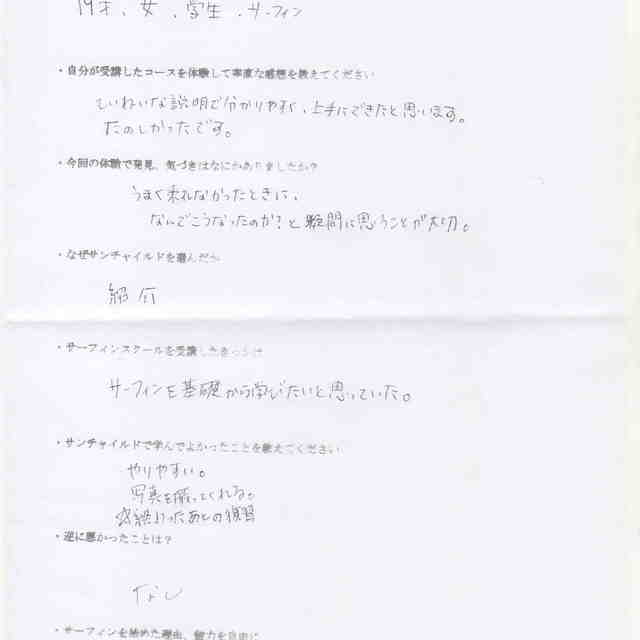 19才、女、学生、サーフィン
・自分が受講したコースを体験して率直な感想を教えてください
ていねいな説明で分かりやすく、上手にできたと思います。
たのしかったです。
・今回の体験で発見、気づきはなにかありましたか？
うまく乗れなかったときに、
なんでこうなったのか？と疑問に思うことが大切。
・なぜサンチャイルドを選んだか
紹介
・サーフィンスクールを受講したきっかけ
サーフィンを基礎から学びたいと思っていた。
・サンチャイルドで学んでよかったことを教えてください
やりやすい。
写真を撮ってくれる。
終わったあとの練習
・逆に悪かったことは？
なし
・サーフィンを始めた理由、魅力を自由に